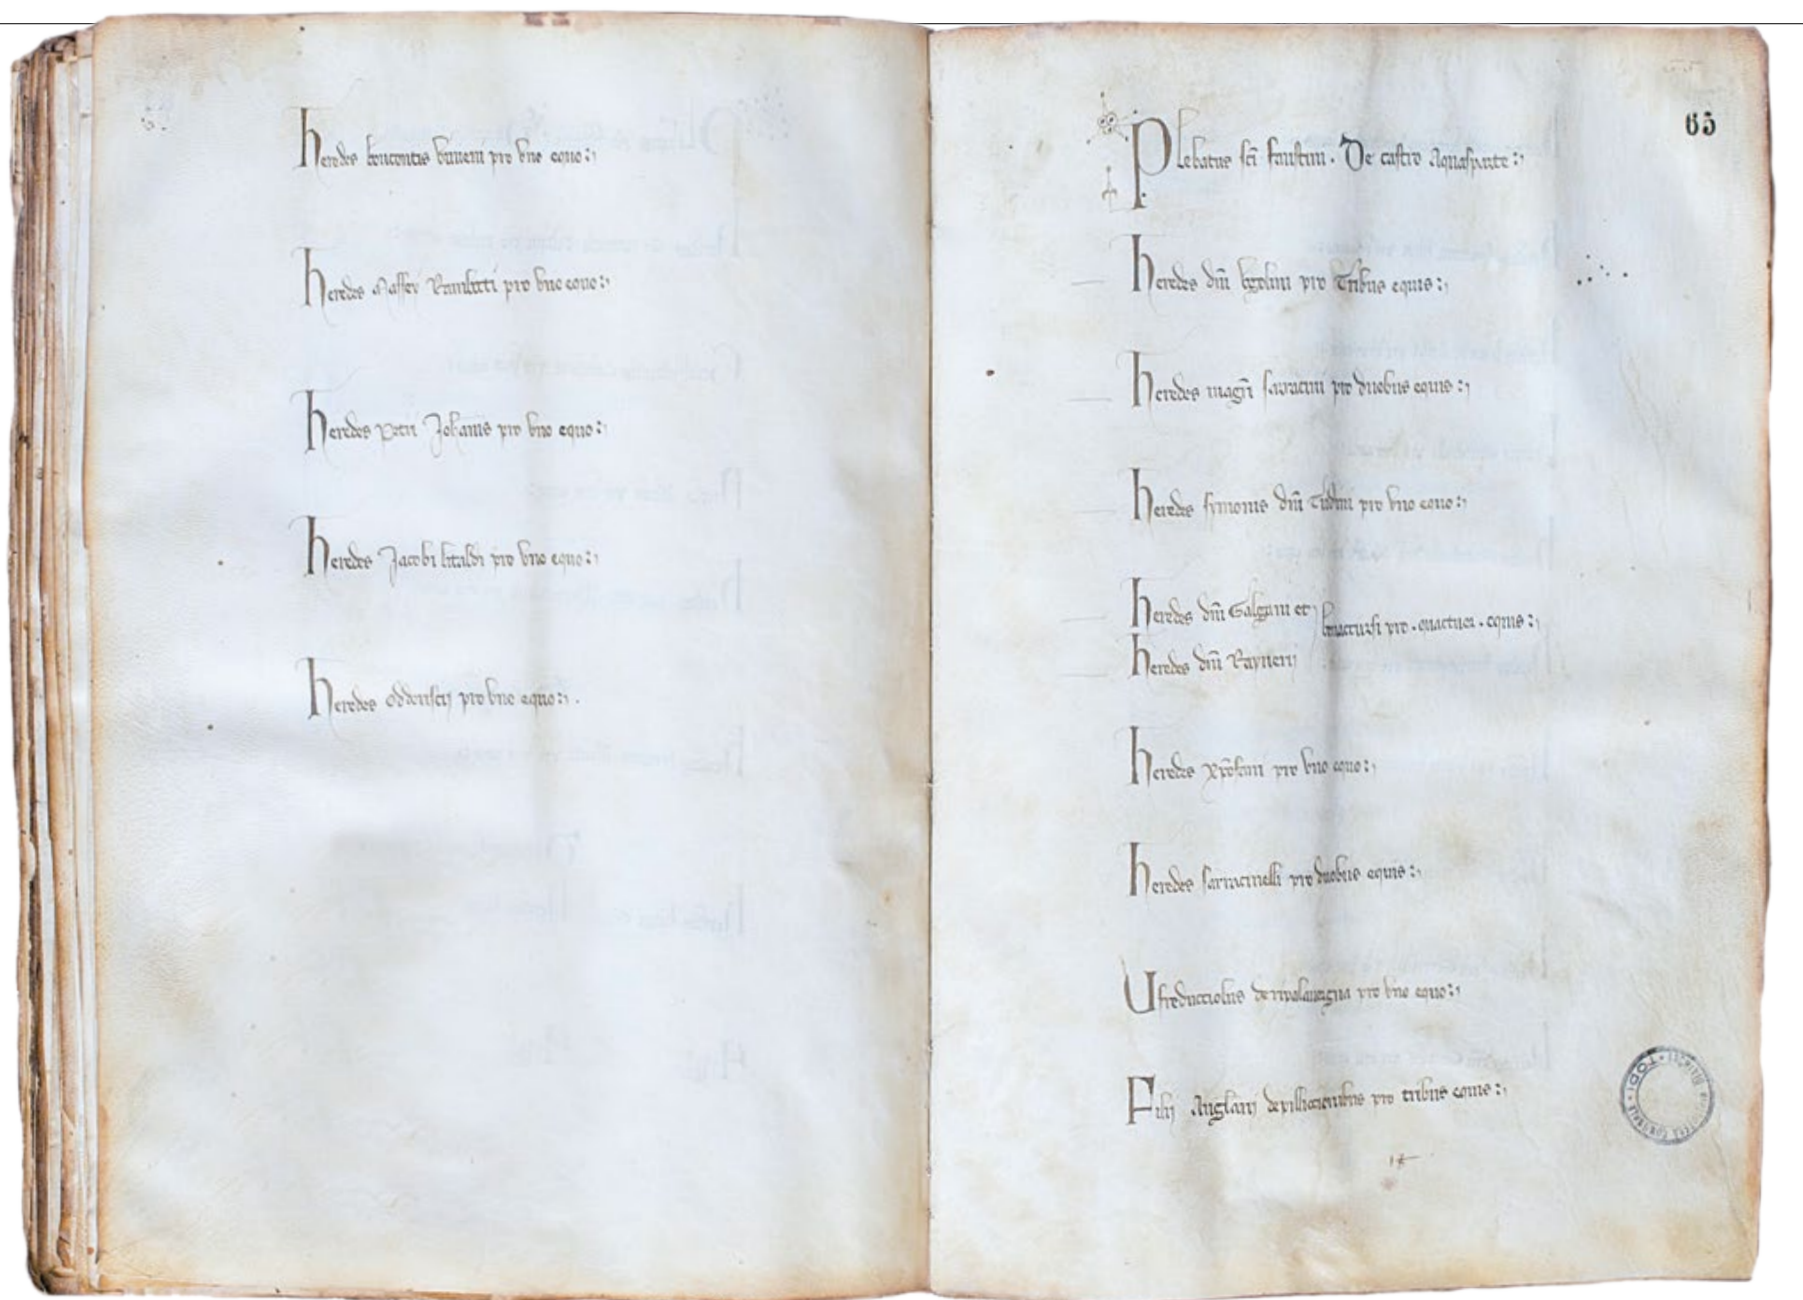 heredes boncontis
pro uno equo:
heredes Maffei
pro uno equo:
heredes Petri Johanis pro uno equo:
heredes Jacobi
pro uno equo:
heredes Odderiscij pro uno equo:
65
Plebatus sci faustini. De castro Aquasparte:
heredes dni Ugolini pro Tribus equis:
heredes magri sarracini pro duobus equis:
heredes symonis dni Tudini pro uno equo:
heredes dni Galgani et
bonaccursi pro quactuor equis:
heredes dni Raynerij
heredes
pro uno equo:
heredes sarracinelli pro duobus equis:
Ufreducciolus de
pro uno equo:
Filij Anglarij de
pro tribus equis:
TODI